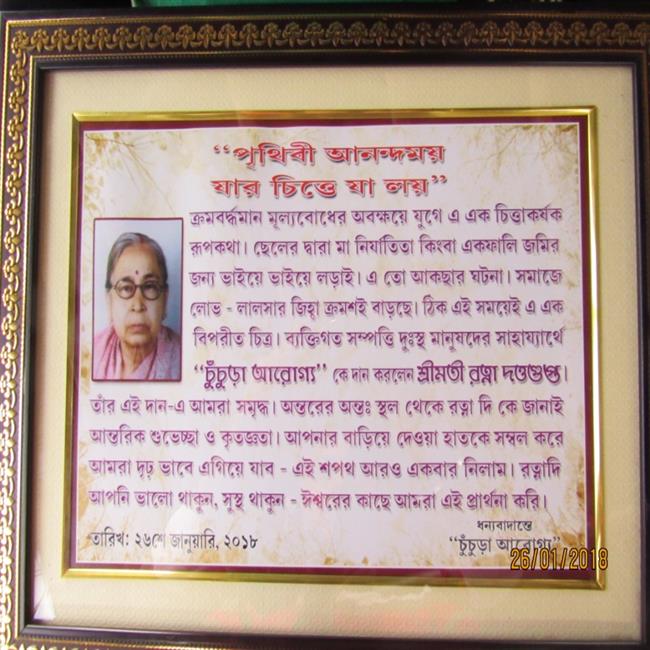 “পৃথিবী আনন্দময়
যার চিত্তে যা লয়”
ক্রমবর্দ্ধমান মূল্যবোধের অবক্ষয়ে যুগে এ এক চিত্তাকর্ষক
রূপকথা। ছেলের দ্বারা মা নির্যাতিতা কিংবা একফালি জমির
জন্য ভাইয়ে ভাইয়ে লড়াই। এ তো আকছার ঘটনা। সমাজে
লোভ - লালসার জিহ্বা ক্রমশই বাড়ছে। ঠিক এই সময়েই এ এক
বিপরীত চিত্র। ব্যক্তিগত সম্পত্তি দুঃস্থ মানুষদের সাহায্যার্থে
“চুঁচুড়া আরোগ্য” কে দান করলেন শ্রীমতী রত্না দত্তগুপ্ত।
তাঁর এই দান-এ আমরা সমৃদ্ধ। অন্তরের অন্তঃ স্থল থেকে রত্না দি কে জানাই
আন্তরিক শুভেচ্ছা ও কৃতজ্ঞতা। আপনার বাড়িয়ে দেওয়া হাতকে সম্বল করে
আমরা দৃঢ় ভাবে এগিয়ে যাব - এই শপথ আরও একবার নিলাম। রত্নাদি
আপনি ভালো থাকুন, সুস্থ থাকুন - ঈশ্বরের কাছে আমরা এই প্রার্থনা করি।
ধন্যবাদান্তে
তারিখ: ২৬শে জানুয়ারি, ২০১৮ “চুঁচুড়া আরোগ্য”
26/01/2018